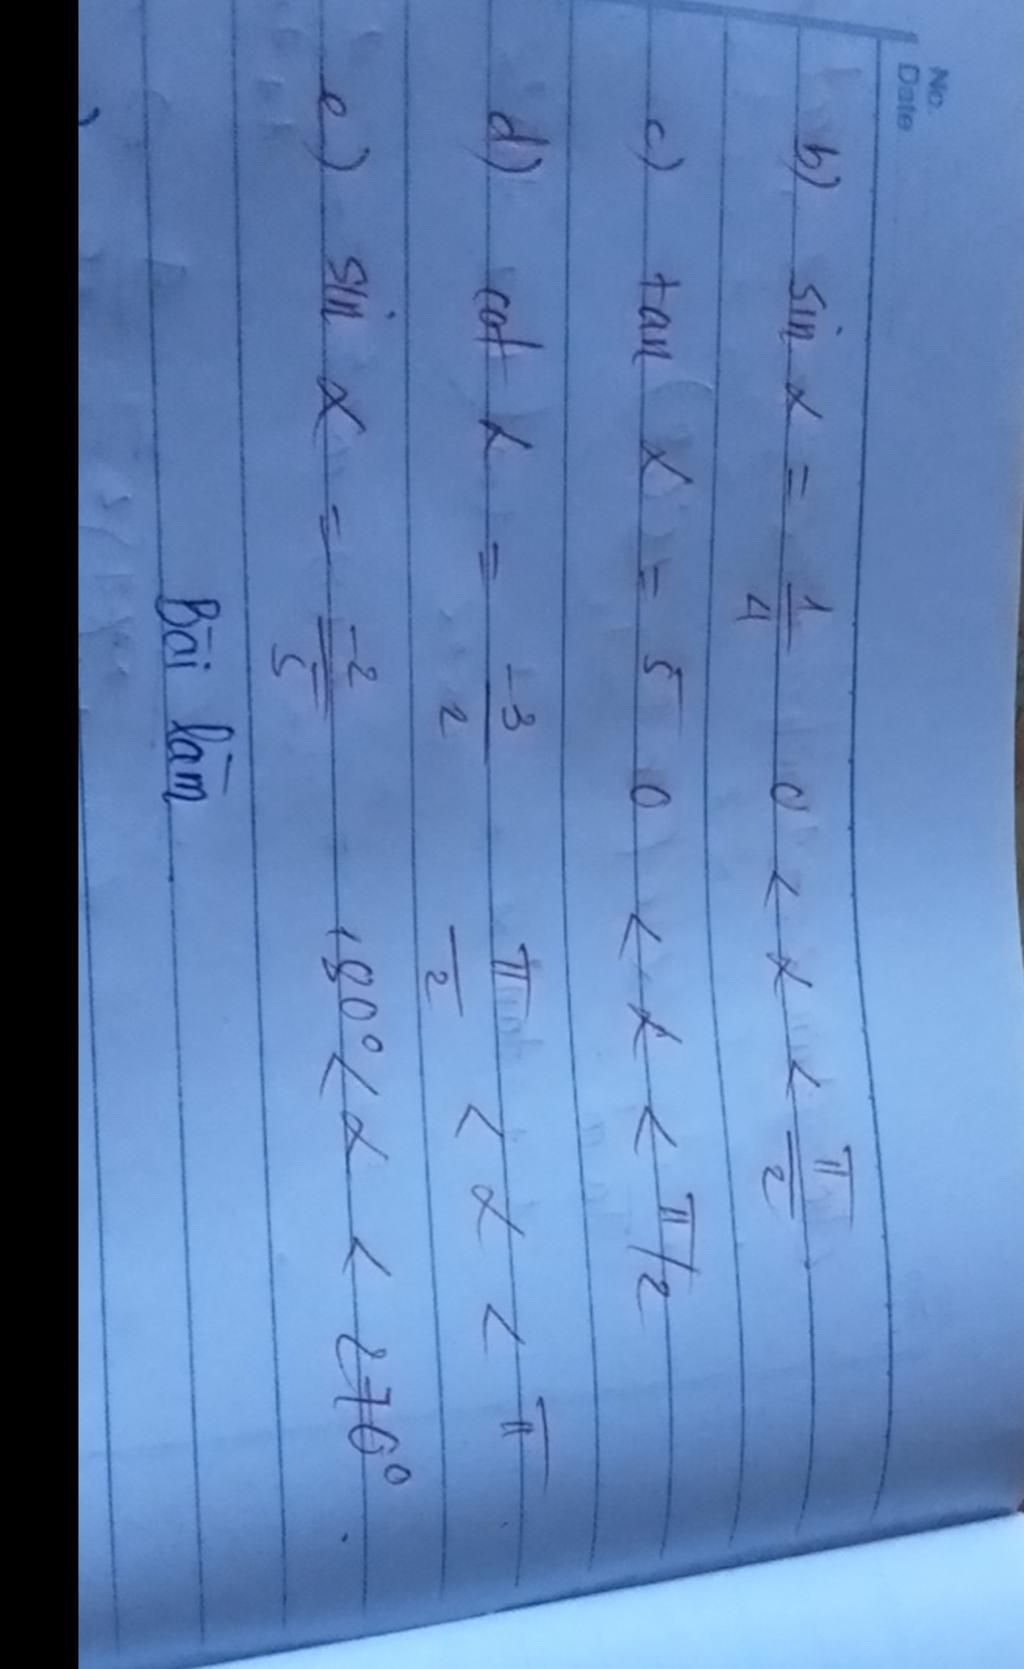 No.
Date
b) sin α = 1/4 0 < α < π/2
c) tan α = 5 0 < α < π/2
d) cot α = -3/2 π/2 < α < π
e) sin α = -2/5 180° < α < 270°
Bài làm